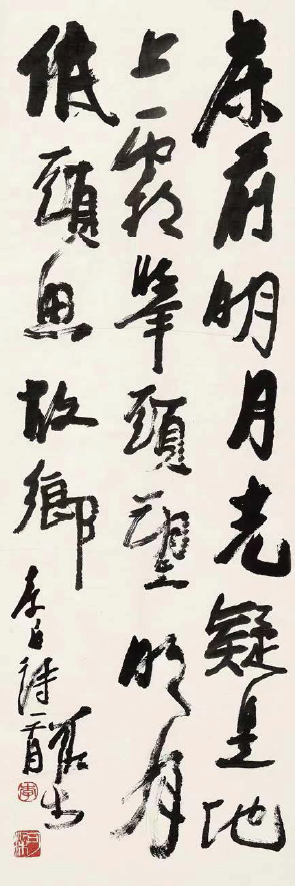 床前明月光疑是地
上霜举頭望明月
低頭思故鄉
李白诗一首